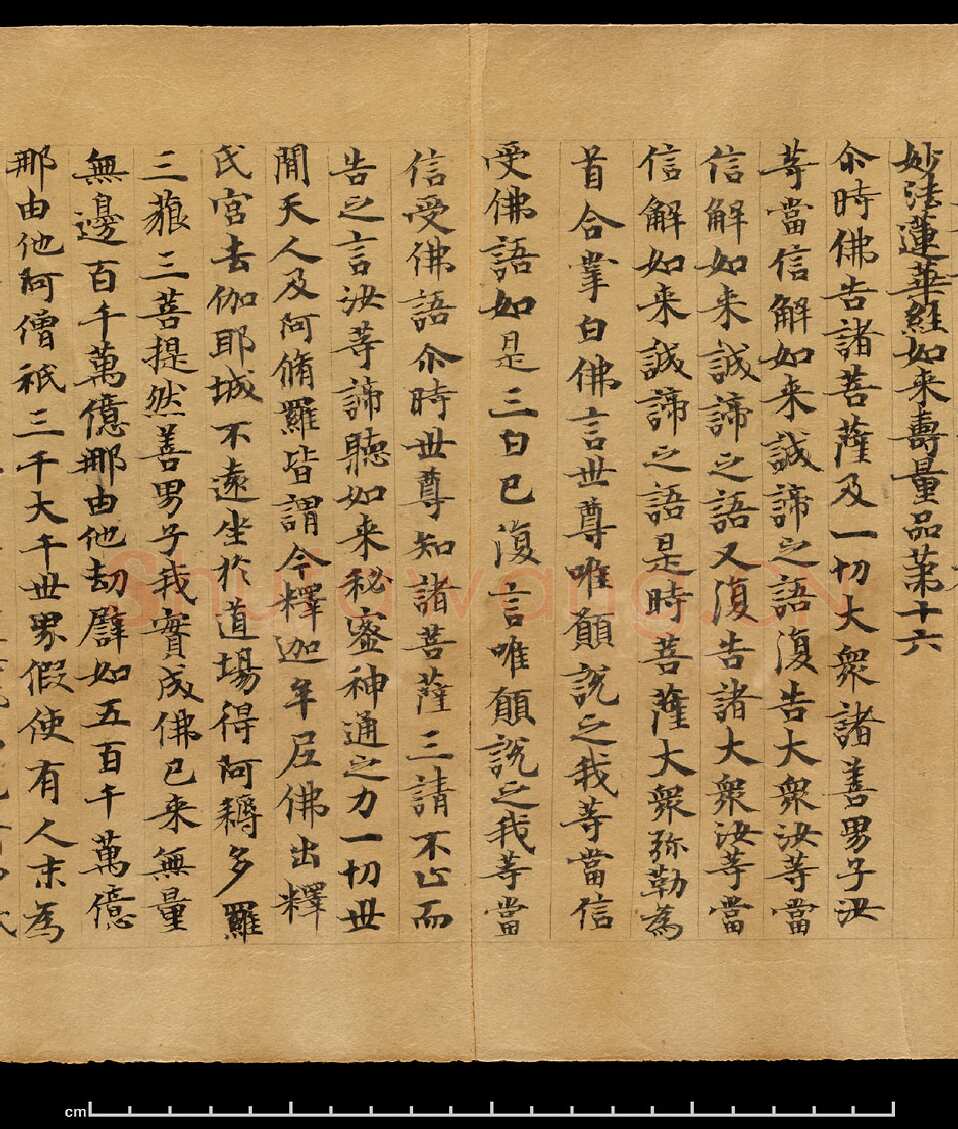 妙法蓮華經如来壽量品苐十六
尒時佛告諸菩薩及一切大衆諸善男子汝
等當信解如来誠諦之語復告大衆汝等當
信解如来誠諦之語又復告諸大衆汝等當
信解如来誠諦之語是時菩薩大衆弥勒為
首合掌白佛言世尊唯願說之我等當信
受佛語如是三白已復言唯願說之我等當
信受佛語尒時世尊知諸菩薩三請不止而
告之言汝等諦聽如来秘密神通之力一切世
間天人及阿脩羅皆謂今釋迦牟尼佛出釋
氏宮去伽耶城不遠坐於道場得阿耨多羅
三藐三菩提然善男子我實成佛已来無量
無邊百千萬億那由他劫譬如五百千萬億
那由他阿僧祇三千大千世界假使有人末為
cm
Shufawang.CN